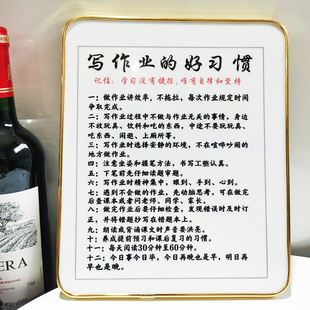 写作业的好习惯
记住：学习没有捷径，唯有自律和坚持
一：做作业讲效率，不拖拉，每次作业规定时间
争取完成。
二：写作业过程中不做与作业无关的事情，身边
不放玩具、饮料和吃的东西，中途不要玩玩具、
吃东西、闲逛、上厕所等。
三：写作业时选择安静的环境，不在喧哗吵闹的
地方做作业。
四：注意坐姿和握笔方法，书写工整认真。
五：下笔前先仔细读题审题。
六：写作业时精神集中，眼到、手到、心到。
七：遇到不会做的作业，先动脑思考，写在在会
做完后查课本或者问老师、同学、家长。
八：做完作业后要仔细检查，发现错误时及时订
正，并将错题抄写在错题本上。
九：朗读或背诵课文时声音要洪亮。
十：养成提前预习和课后复习的习惯。
十一：每天阅读30分钟至60分钟。
十二：今日事今日毕，今日再晚也是早，明日再
早也是晚。
ERA